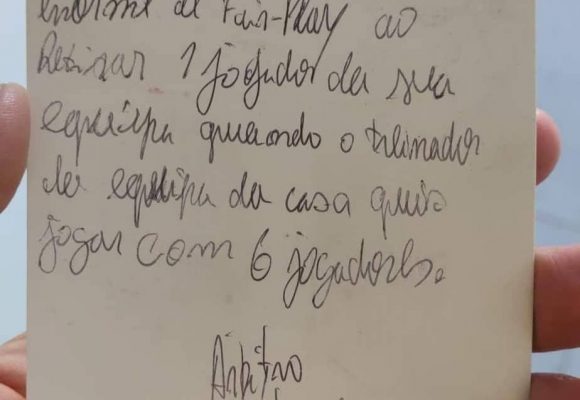 enorme de Fair-Play ao
Retirar 1 jogador da sua
equipa quando o treinador
da equipa da casa quis
jogar com 6 jogadores.
Árbitro